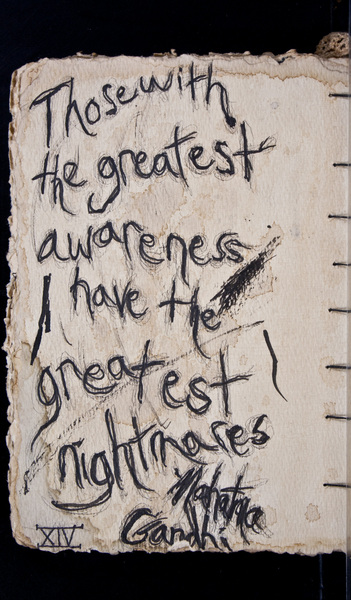 Those with
the greatest
awareness
have the
greatest
nightmares
Mahatma
Gandhi
XIV